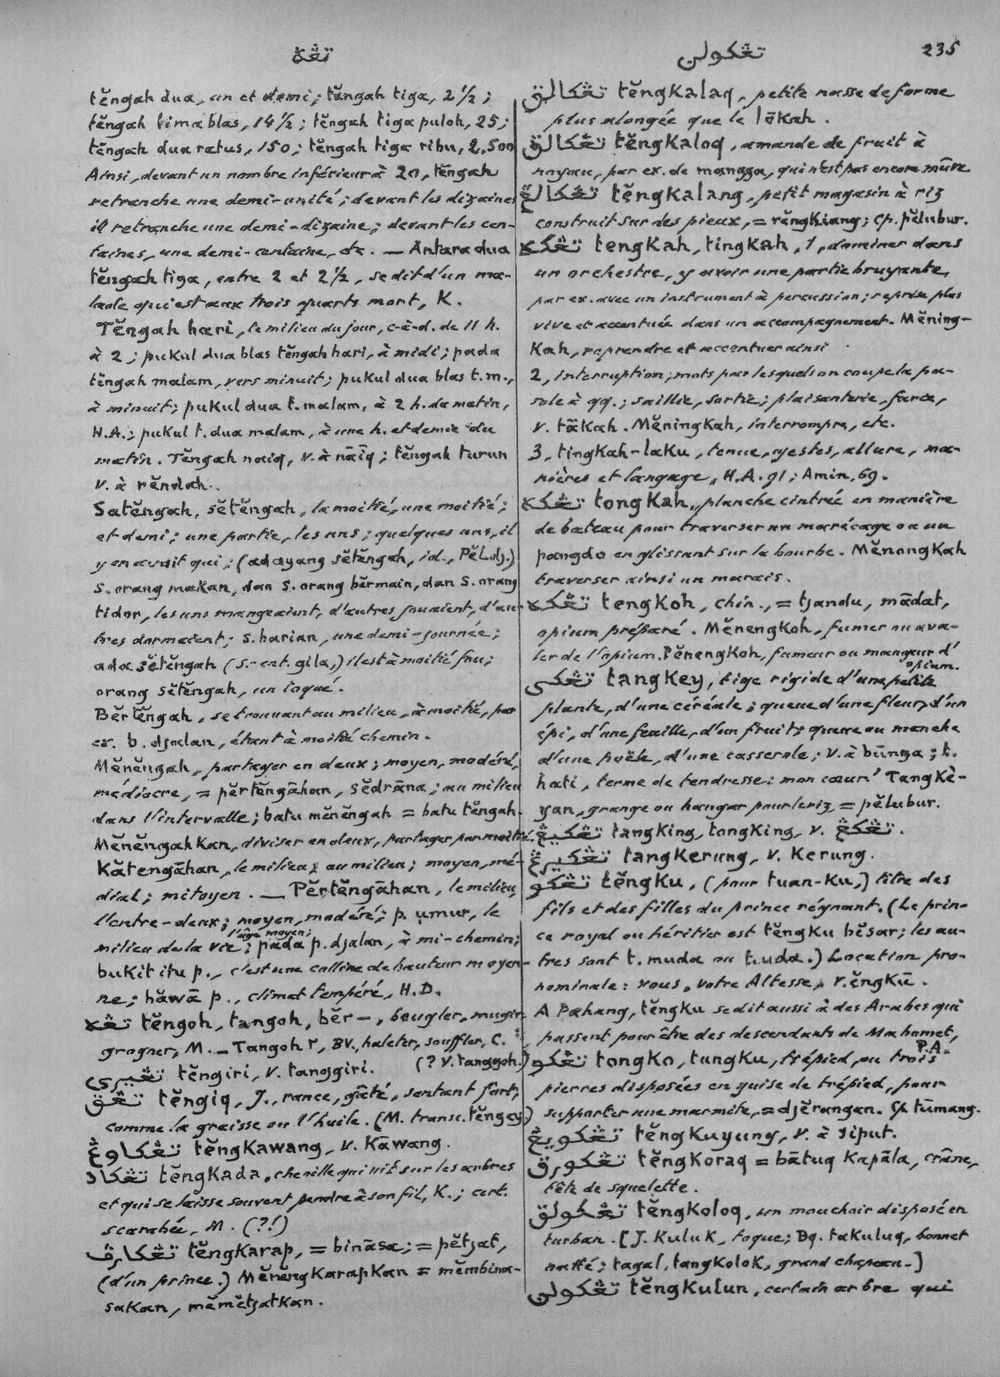 تڠه
تڠكولن
235
tĕngah dua, un et demi; tĕngah tiga, 2 1/2;
tĕngah lima blas, 14 1/2; tĕngah tiga puloh, 25;
tĕngah dua ratus, 150; tĕngah tiga ribu, 2,500
Ainsi, devant un nombre inférieur à 20, tĕngah
retranche une demi-unité; devant les dizaines
il retranche une demi-dizaine; devant les cen-
taines, une demi-centaine, etc. — Antara dua
tĕngah tiga, entre 2 et 2 1/2, se dit d'un ma-
lade qui est aux trois quarts mort, K.
Tĕngah hari, le milieu du jour, c-à-d. de 11 h.
à 2; pukul dua blas tĕngah hari, à midi; pada
tĕngah malam, vers minuit; pukul dua blas t. m.,
à minuit; pukul dua t. malam, à 2 h. du matin,
H.A.; pukul t. dua malam, à une h. et demie du
matin. Tĕngah naiq, v. à nāiq; tĕngah turun
v. à rĕndah.
Satĕngah, sĕtĕngah, la moitié, une moitié;
et demi; une partie, les uns; quelques uns, il
y en avait qui; (ada yang sĕtĕngah, id., Pĕl. dj.)
s. orang makan, dan s. orang bĕrmain, dan s. orang
tidor, les uns mangeaient, d'autres jouaient, d'au-
tres dormaient; s. harian, une demi-journée;
ada sĕtĕngah (s.-ent. gila,) il est à moitié fou;
orang sĕtĕngah, un toqué.
Bĕrtĕngah, se trouvant au milieu, à moitié, par
ex. b. djalan, étant à moitié chemin.
Mĕnĕngah, partager en deux; moyen, modéré,
médiocre, = pĕrtĕngāhan, sĕdrāna; au milieu
dans l'intervalle; batu mĕnĕngah = batu tĕngah.
Mĕnĕngahkan, diviser en deux, partager par moitié.
Kātengāhan, le milieu; au milieu; moyen, mé-
dial; mitoyen. — Pĕrtĕngāhan, le milieu,
l'entre-deux; moyen, modéré; p. umur, le
l'âge moyen;
milieu de la vie; pada p. djalan, à mi-chemin;
bukit itu p., c'est une colline de hauteur moyen-
ne; hāwā p., climat tempéré, H.D.
تڠه tĕngoh, tangoh, bĕr—, beugler, mugir,
grogner, M. — Tangoh r, BV., haleter, souffler, C.
(? v. tanggoh.)
تڠيري tĕngiri, v. tanggiri.
تڠق tĕngiq, J., rance, gâté, sentant fort,
comme la graisse ou l'huile. (M. transc. tĕngey.)
تڠكاوڠ tĕngkawang, v. Kāwang.
تڠكاد tĕngkada, chenille qui vit sur les arbres
et qui se laisse souvent pendre à son fil, K.; cert.
scarabée, M. (?!)
تڠكارڤ tĕngkarap, = bināsa; = pĕtjat,
(d'un prince.) Mĕnĕngkarapkan = mĕmbina-
sakan, mĕmĕtjatkan.
تڠكالق tĕngkalaq, petite nasse de forme
plus alongée que le lākah.
تڠكالق tĕngkaloq, amande de fruit à
noyau, par ex. de mangga, qui n'est pas encore mûre
تڠكالڠ tĕngkalang, petit magasin à riz
construit sur des pieux, = rĕngkiang; cp. pĕlubur.
تڠكه tengkah, tingkah, 1, dominer dans
un orchestre, y avoir une partie bruyante,
par ex. avec un instrument à percussion; reprise plus
vive et accentuée dans un accompagnement. Mĕning-
kah, reprendre et accentuer ainsi
2, interruption; mots par lesquels on coupe la pa-
role à qq.; saillie, sortie; plaisanterie, farce,
v. tākah. Mĕningkah, interrompre, etc.
3, tingkah-laku, tenue, gestes, allure, ma-
nières et langage, H.A. 91; Amin, 69.
تڠكه tongkah, planche cintrée en manière
de bateau pour traverser un marécage ou un
pangdo en glissant sur la bourbe. Mĕnongkah
traverser ainsi un marais.
تڠكه tengkoh, chin., = tjandu, mādat,
opium préparé. Mĕnengkoh, fumer ou ava-
ler de l'opium. Pĕnengkoh, fumeur ou mangeur d'
opium.
تڠكي tangkey, tige rigide d'une petite
plante, d'une céréale; queue d'une fleur, d'un
épi, d'une feuille, d'un fruit; queue ou manche
d'une poêle, d'une casserole; v. à būnga; t.
hati, terme de tendresse: mon cœur! Tangkè-
yan, grange ou hangar pour le riz, = pĕlubur.
تڠكيڠ tangking, tongking, v. تڠكڠ.
تڠكيرڠ tangkerung, v. Kerung.
تڠكو tĕngku, (pour tuan-ku,) titre des
fils et des filles du prince régnant. (Le prin-
ce royal ou héritier est tĕngku bĕsar; les au-
tres sont t. muda ou t. tuda.) Location pro-
nominale: vous, votre Altesse, v. ĕngkū.
A Pahang, tĕngku se dit aussi à des Arabes qui
passent pour être des descendants de Mahomet,
P.A.
تڠكو tongko, tungku, trépied, ou trois
pierres disposées en guise de trépied, pour
supporter une marmite, = djĕrangan. Cp. tūmang.
تڠكويڠ tĕngkuyung, v. à siput.
تڠكورق tĕngkoraq = bātuq kapāla, crâne,
tête de squelette.
تڠكولق tĕngkoloq, un mouchoir disposé en
turban. [J. kuluk, toque; Bg. takuluq, bonnet
natté; tagal, tangkolok, grand chapeau.]
تڠكولن tĕngkulun, certain arbre qui